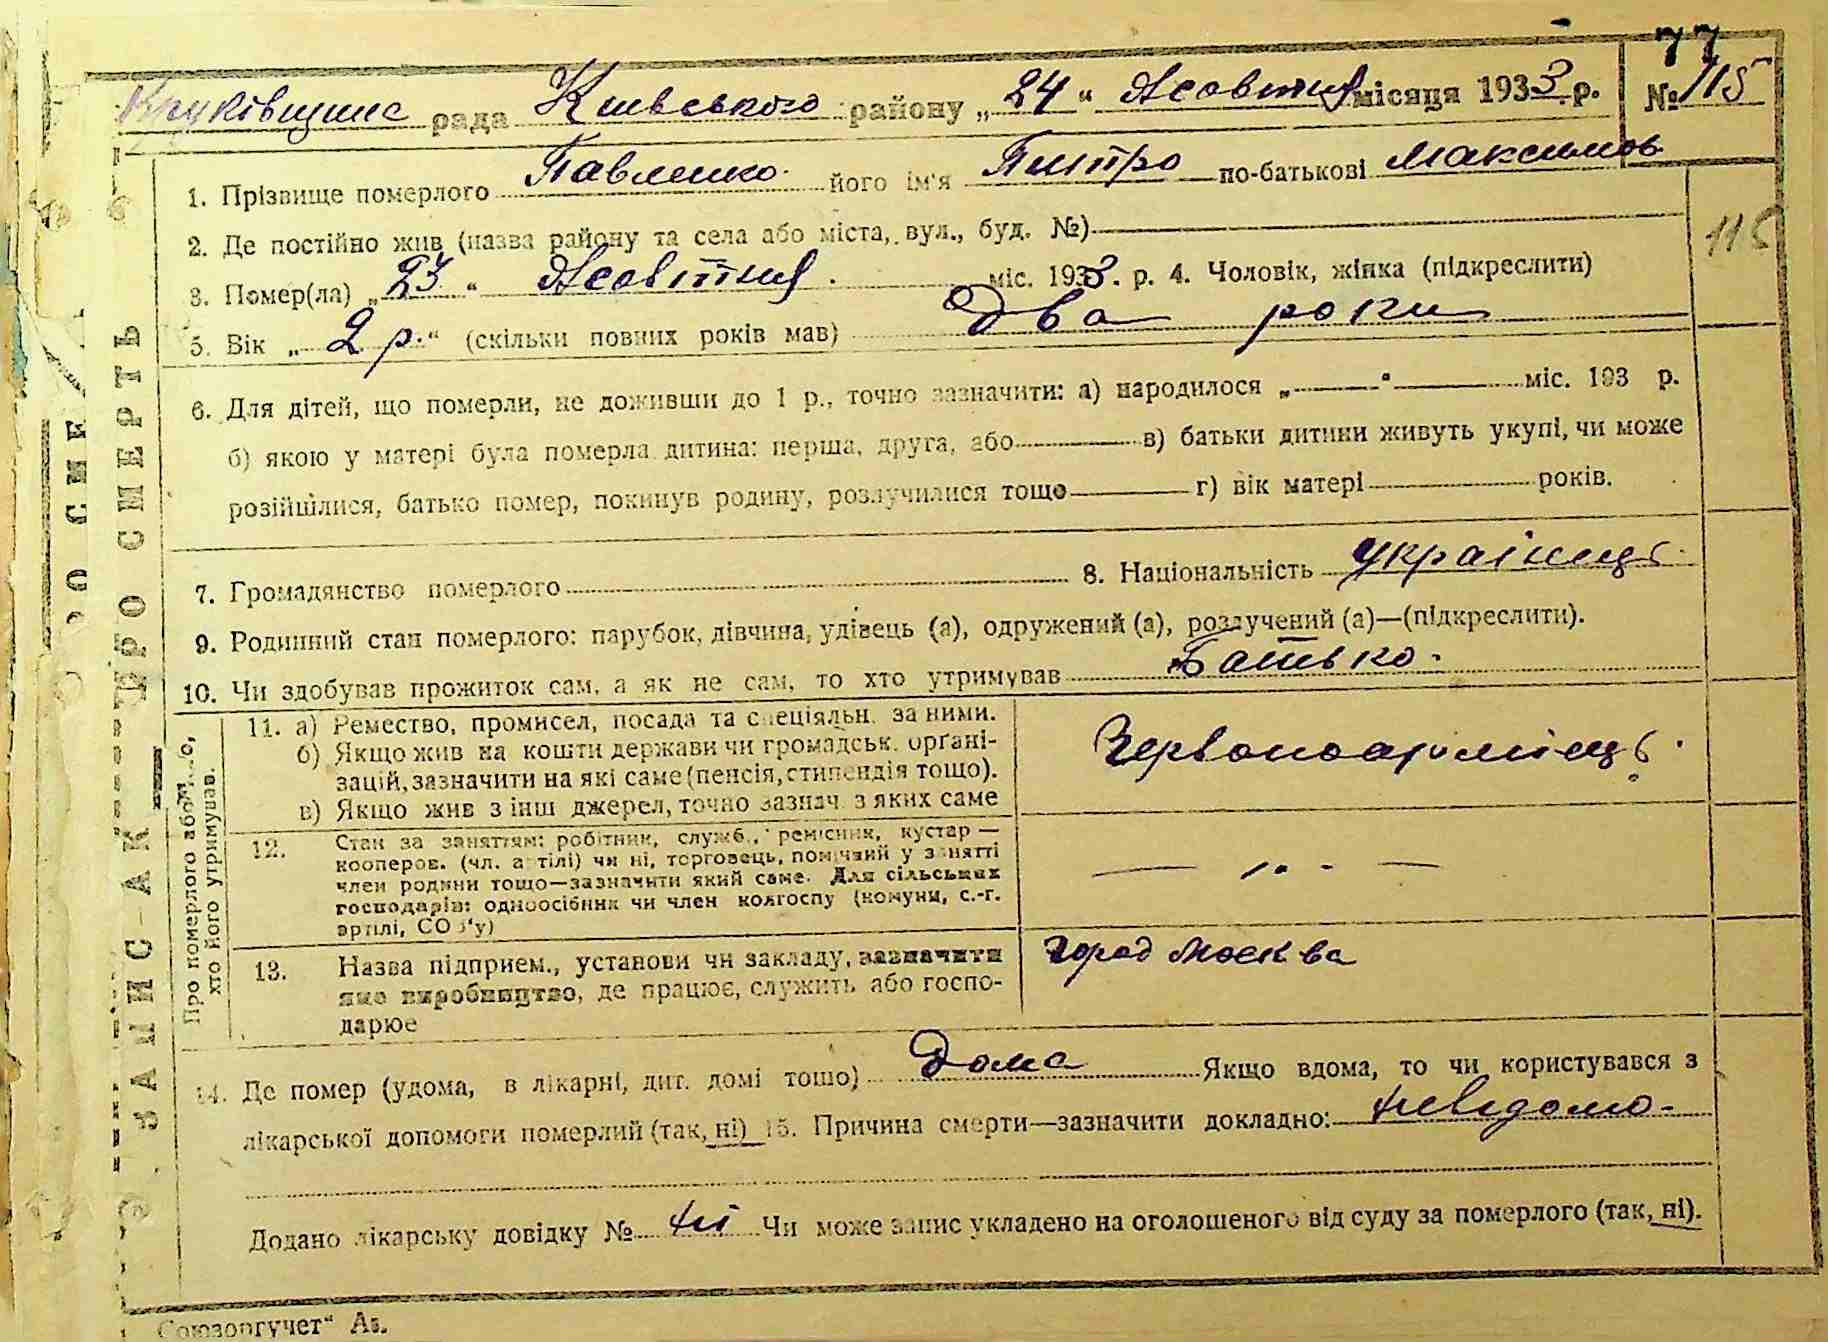 77
Крюківщинс рада Київського району „24“ Жовтня місяця 1933 р. № 115
1. Прізвище померлого Павленко його ім'я Питро по-батькові Максимов
115
2. Де постійно жив (назва району та села або міста, вул., буд. №)
3. Помер(ла) „23“ Жовтня міс. 1933 р. 4. Чоловік, жінка (підкреслити)
5. Вік „2 р.“ (скільки повних років мав) Два роки
6. Для дітей, що померли, не доживши до 1 р., точно зазначити: а) народилося „ “ міс. 193 р.
б) якою у матері була померла дитина: перша, друга, або в) батьки дитини живуть укупі, чи може
розійшлися, батько помер, покинув родину, розлучилися тощо г) вік матері років.
7. Громадянство померлого 8. Національність українець
9. Родинний стан померлого: парубок, дівчина, удівець (а), одружений (а), розлучений (а)—(підкреслити).
10. Чи здобував прожиток сам, а як не сам, то хто утримував Батько.
Про померлого або
хто його утримував.
11. а) Ремество, промисел, посада та спеціяльн. за ними.
б) Якщо жив на кошти держави чи громадськ. органі-
зацій, зазначити на які саме (пенсія, стипендія тощо).
в) Якщо жив з інш джерел, точно зазнач. з яких саме
Червоноармієць.
12. Стан за заняттям: робітник, служб., ремісник, кустар —
кооперов. (чл. артілі) чи ні, торговець, помічний у занятті
член родини тощо—зазначити який саме. Для сільських
господарів: одноосібник чи член колгоспу (комуни, с.-г.
артілі, СОЗ'у)
13. Назва підприєм., установи чи закладу, зазначити
яке виробництво, де працює, служить або госпо-
дарює
город Москва
14. Де помер (удома, в лікарні, дит. домі тощо) Дома Якщо вдома, то чи користувався з
лікарської допомоги померлий (так, ні) 15. Причина смерти—зазначити докладно: невідомо.
Додано лікарську довідку № ні Чи може запис укладено на оголошеного від суду за померлого (так, ні).
ЗАПИС-АКТ ПРО СМЕРТЬ
„Союзоргучет“